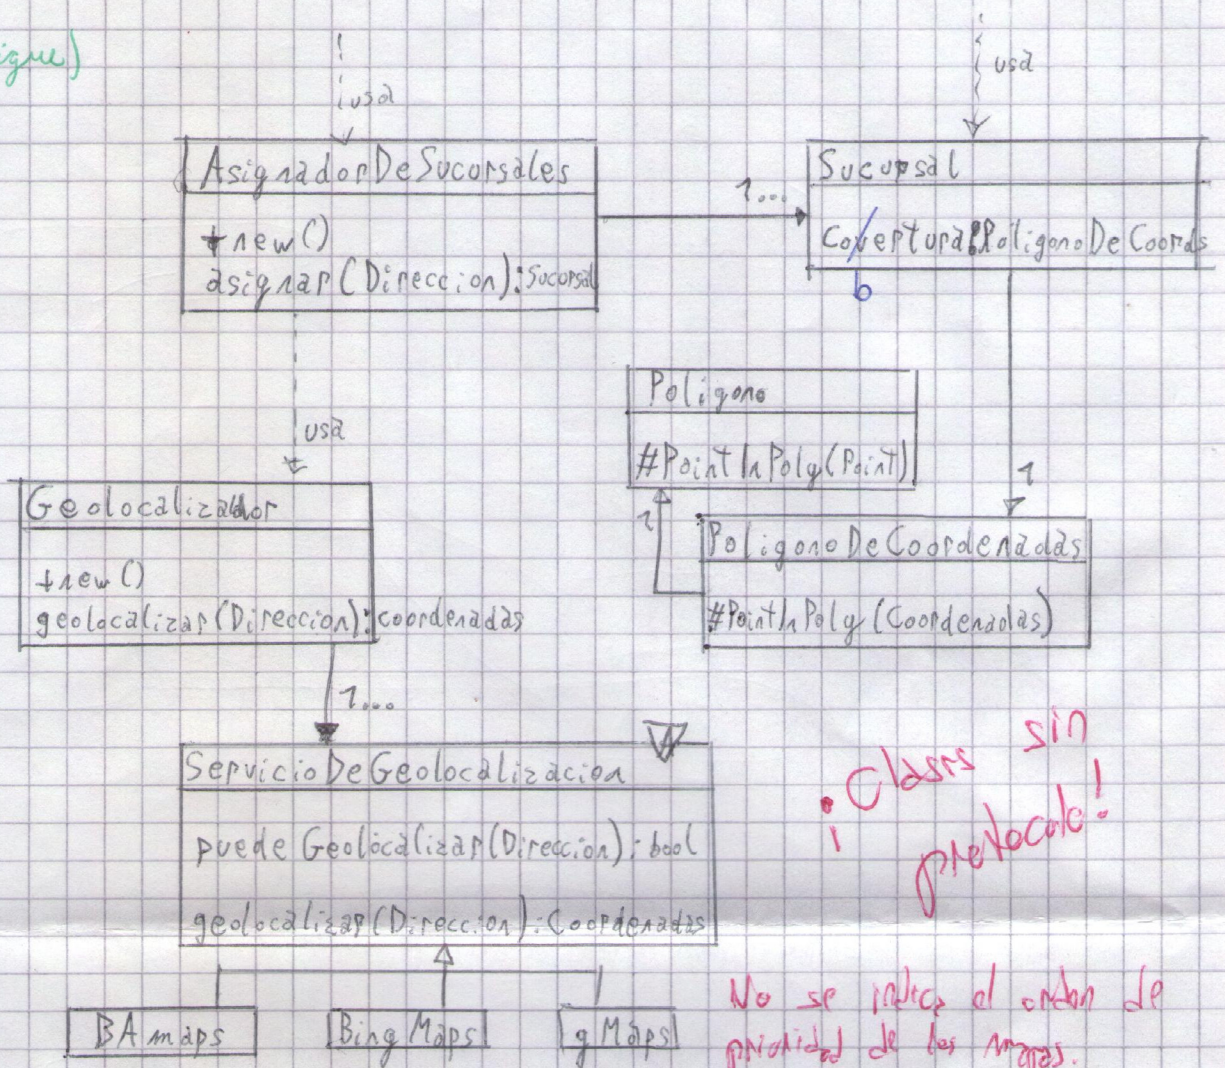 usa
usa
AsignadorDeSucursales
+new()
asignar(Direccion):Sucursal
1...
Sucursal
Covertura:PoligonoDeCoords
b
usa
Poligono
#PointInPoly(Point)
1
1
PoligonoDeCoordenadas
#PointInPoly(Coordenadas)
Geolocalizador
+new()
geolocalizar(Direccion):coordenadas
1...
ServicioDeGeolocalizacion
puedeGeolocalizar(Direccion):bool
geolocalizar(Direccion):Coordenadas
¡Clases sin
protocolo!
BAmaps
BingMaps
gMaps
No se indica el orden de
prioridad de los mapas.